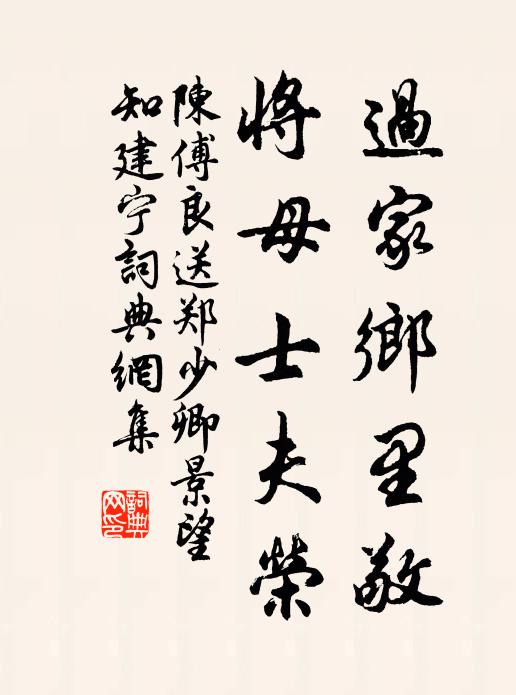 過家鄉里敬
將母士夫榮
陳傅良送郑少卿景望
知建宁詞典網集
詞典网印